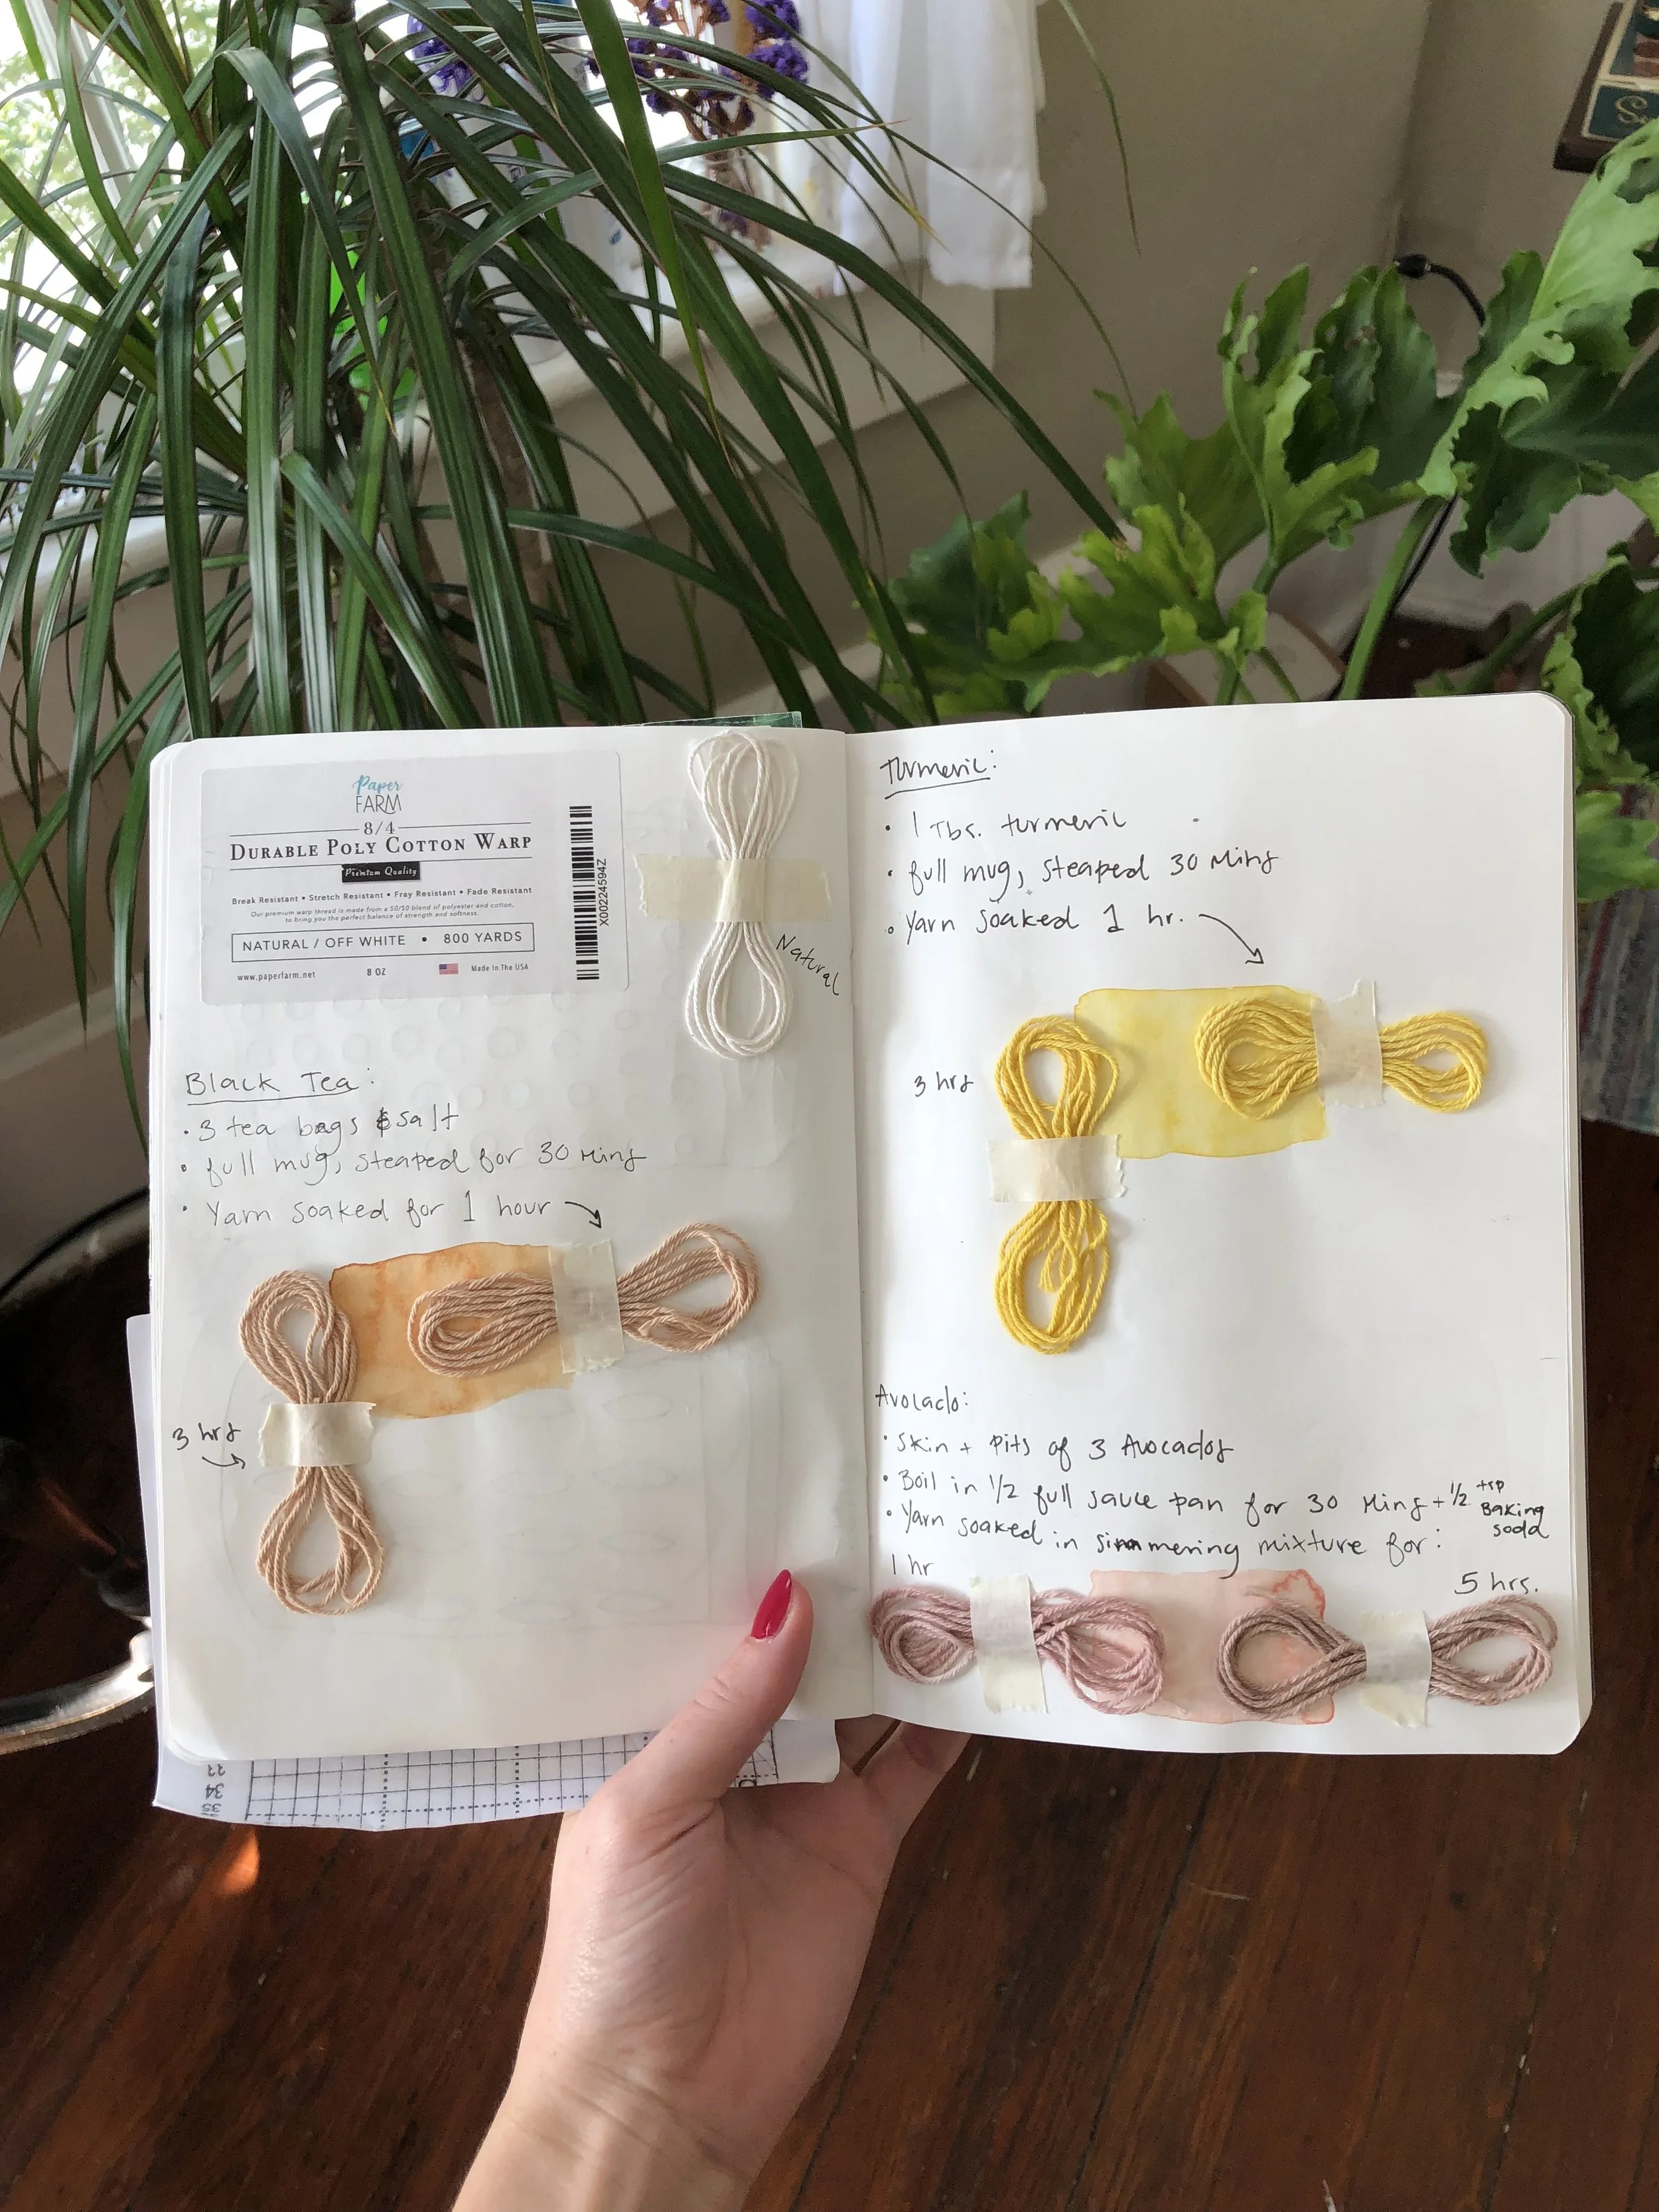 Paper
FARM
8/4
DURABLE POLY COTTON WARP
Premium Quality
Break Resistant • Stretch Resistant • Fray Resistant • Fade Resistant
Our premium warp thread is made from a 50/50 blend of polyester and cotton,
to bring you the perfect balance of strength and softness.
NATURAL / OFF WHITE • 800 YARDS
www.paperfarm.net 8 OZ Made In The USA
X00224594Z
Natural
Black Tea:
• 3 tea bags & salt
• full mug, steaped for 30 mins
• Yarn soaked for 1 hour
3 hrs
Turmeric:
• 1 Tbs. turmeric
• full mug, steaped 30 mins
• Yarn soaked 1 hr.
3 hrs
Avocado:
• Skin + Pits of 3 Avocados
• Boil in 1/2 full sauce pan for 30 mins + 1/2 tsp Baking soda
• Yarn soaked in simmering mixture for:
1 hr
5 hrs.
34
35